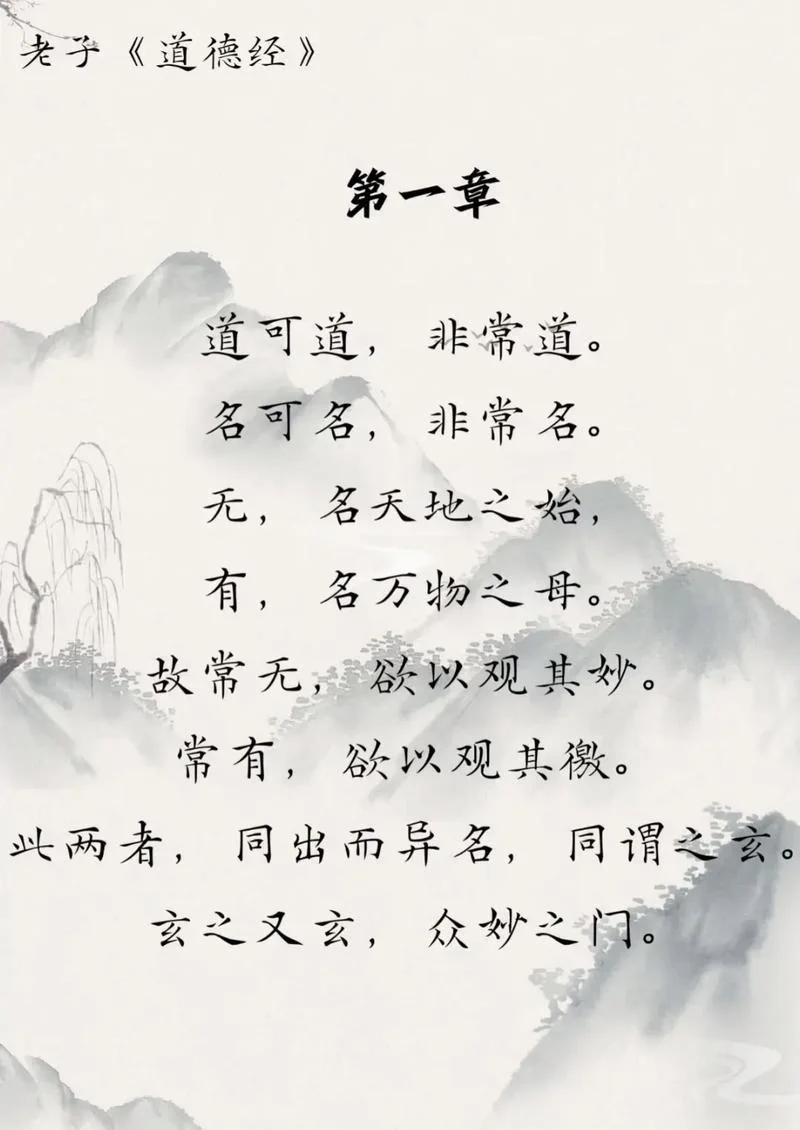 老子《道德经》
第一章
道可道，非常道。
名可名，非常名。
无，名天地之始，
有，名万物之母。
故常无，欲以观其妙。
常有，欲以观其徼。
此两者，同出而异名，同谓之玄。
玄之又玄，众妙之门。